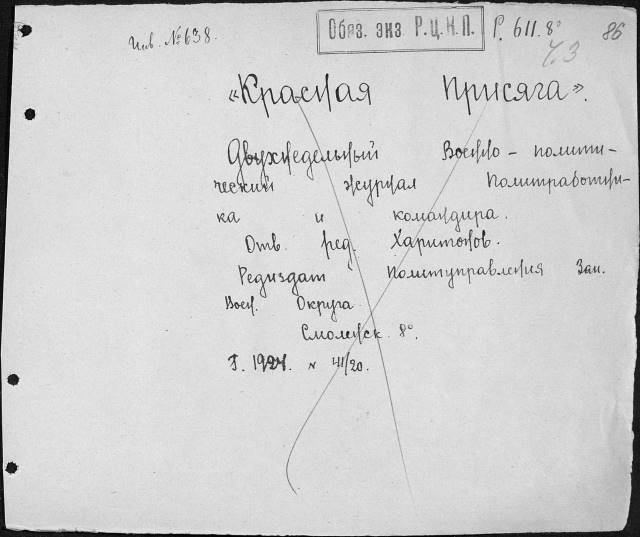 Инв. № 638.
Обяз. экз. Р.Ц.К.П.
Р. 611. 8°
86
Ч. 3
«Красная Присяга».
Двухнедельный Военно - полити-
ческий журнал Политработни-
ка и командира.
Отв. ред. Харитонов.
Редиздат Политуправления Зап.
Воен. Округа
Смоленск. 8°.
Г. 1924. №